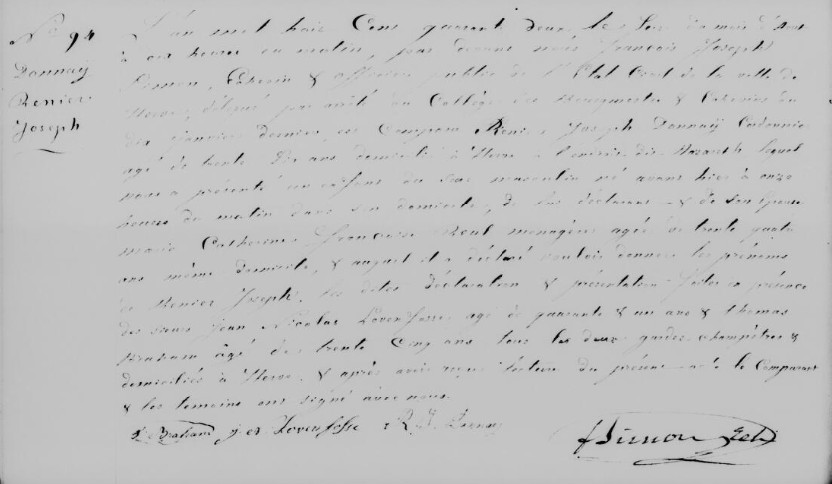 N° 94
Donnay
Renier
Joseph
L'an mil huit Cent quarante deux, le du mois d'Aout
à onze heures du matin, par devant nous François Joseph
Simon, Echevin & officier public de l'Etat Civil de la ville de
Herve, délégué par arrêté du Collège des Bourgmestre & Echevins du
dix janvier dernier, est Comparu Renier Joseph Donnay Cordonnier
agé de trente ans domicilié à Herve à l'endroit dit Nazareth lequel
nous a présenté un enfant du sexe masculin né avant hier à onze
heures du matin dans son domicile, de lui déclarant & de son épouse
Marie Catherine Françoise ménagère agée de trente quatre
ans même domicile, & auquel il a déclaré vouloir donner les prénoms
de Renier Joseph. les dites déclaration & présentation faites en présence
des sieurs Jean Nicolas Lovenfosse agé de quarante & un ans & Thomas
Braham agé de trente Cinq ans tous les deux gardes champêtres &
domiciliés à Herve, & après avoir reçu lecture du présent acte le Comparant
& les temoins ont signé avec nous.
T. Braham J. N. Lovenfosse R. J. Donnay
F J Simon Ech.